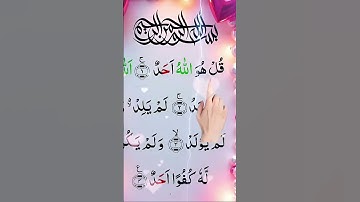 بسم الله الرحمن الرحيم
قُلْ هُوَ اللّٰهُ اَحَدٌ ۚ ۝۱
لَمْ يَلِدْ
لَمْ يُوْلَدْ ۙ ۝۳ وَلَمْ
لَّهٗ كُفُوًا اَحَدٌ ۝۴